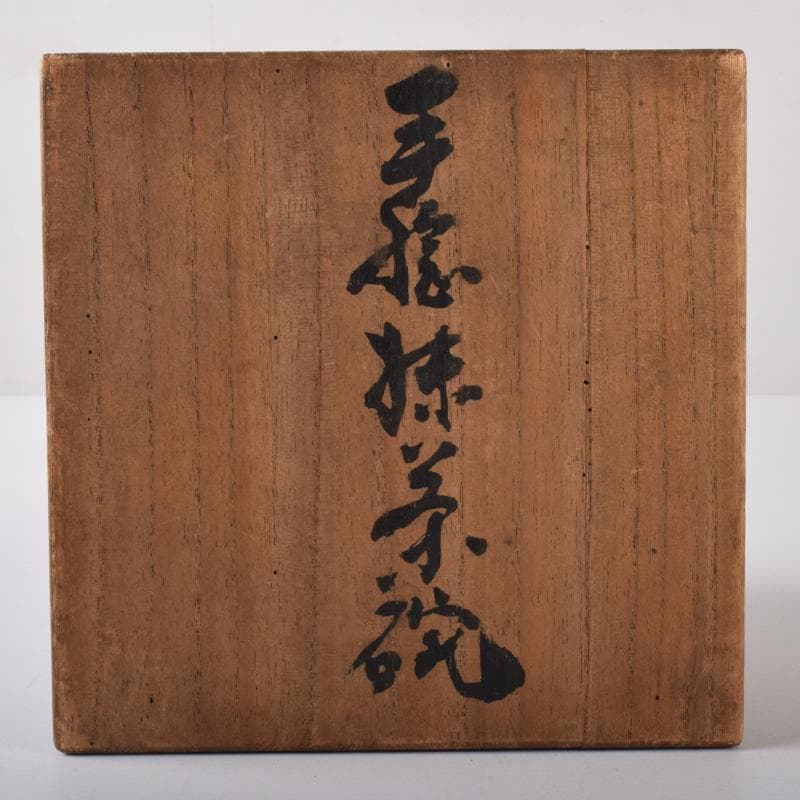 手捻抹茶碗